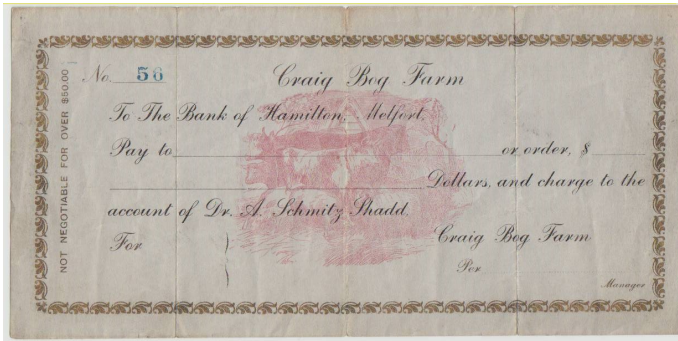 NOT NEGOTIABLE FOR OVER $50.00
No. 56
Craig Bog Farm
To The Bank of Hamilton, Melfort.
Pay to or order, $
Dollars, and charge to the
account of Dr. A. Schmitz Shadd.
For Craig Bog Farm
Per
Manager